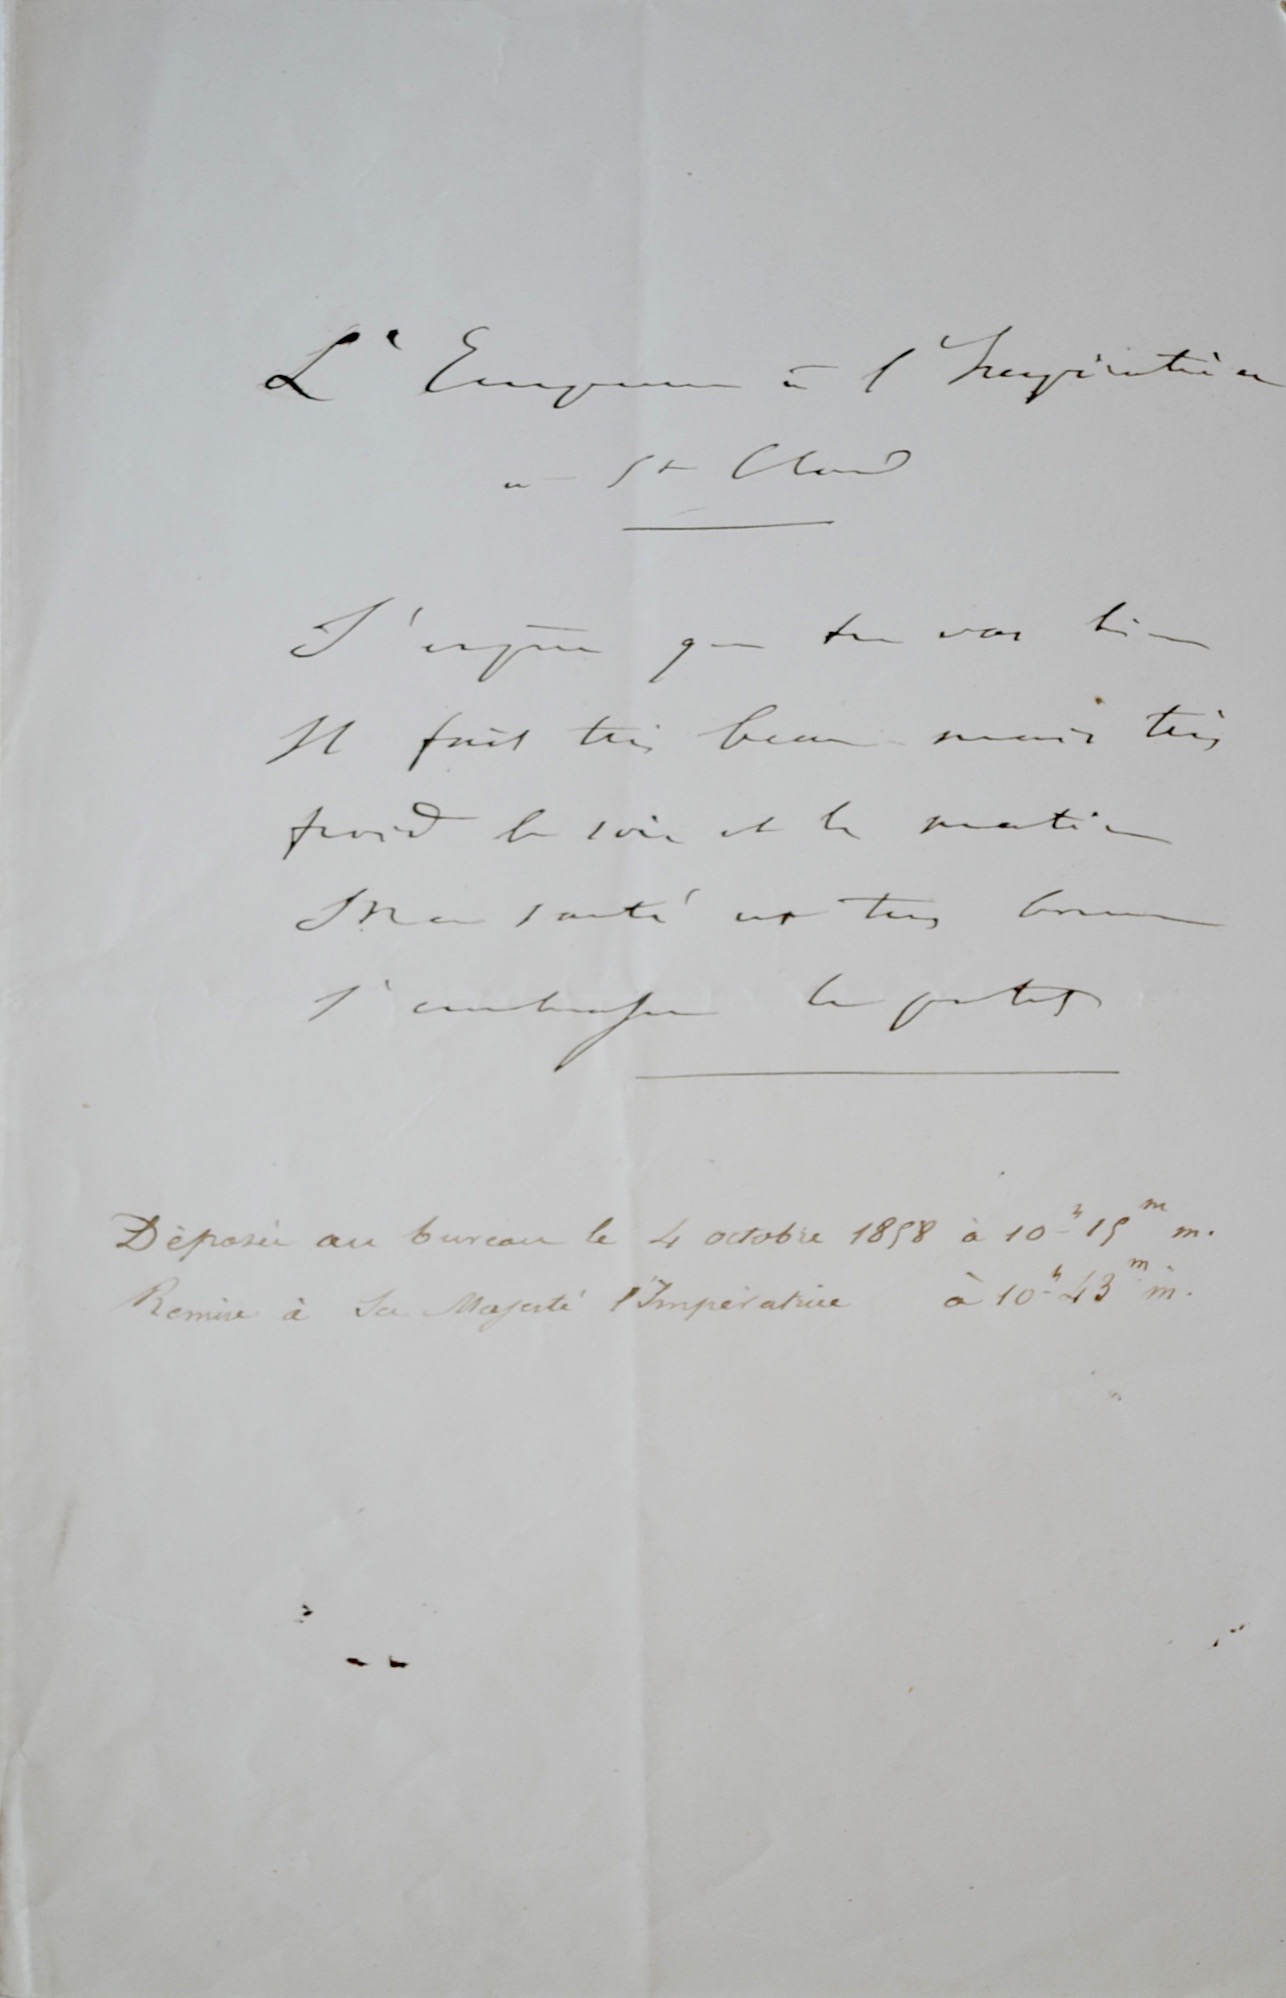 L'Empereur à l'Impératrice
à St Cloud
J'espère que tu vas bien
Il fait très beau mais très
froid le soir et le matin
Ma santé est très bonne
J'embrasse le petit
Déposée au bureau le 4 octobre 1858 à 10h 15m m.
Remise à Sa Majesté l'Impératrice à 10h 43m m.